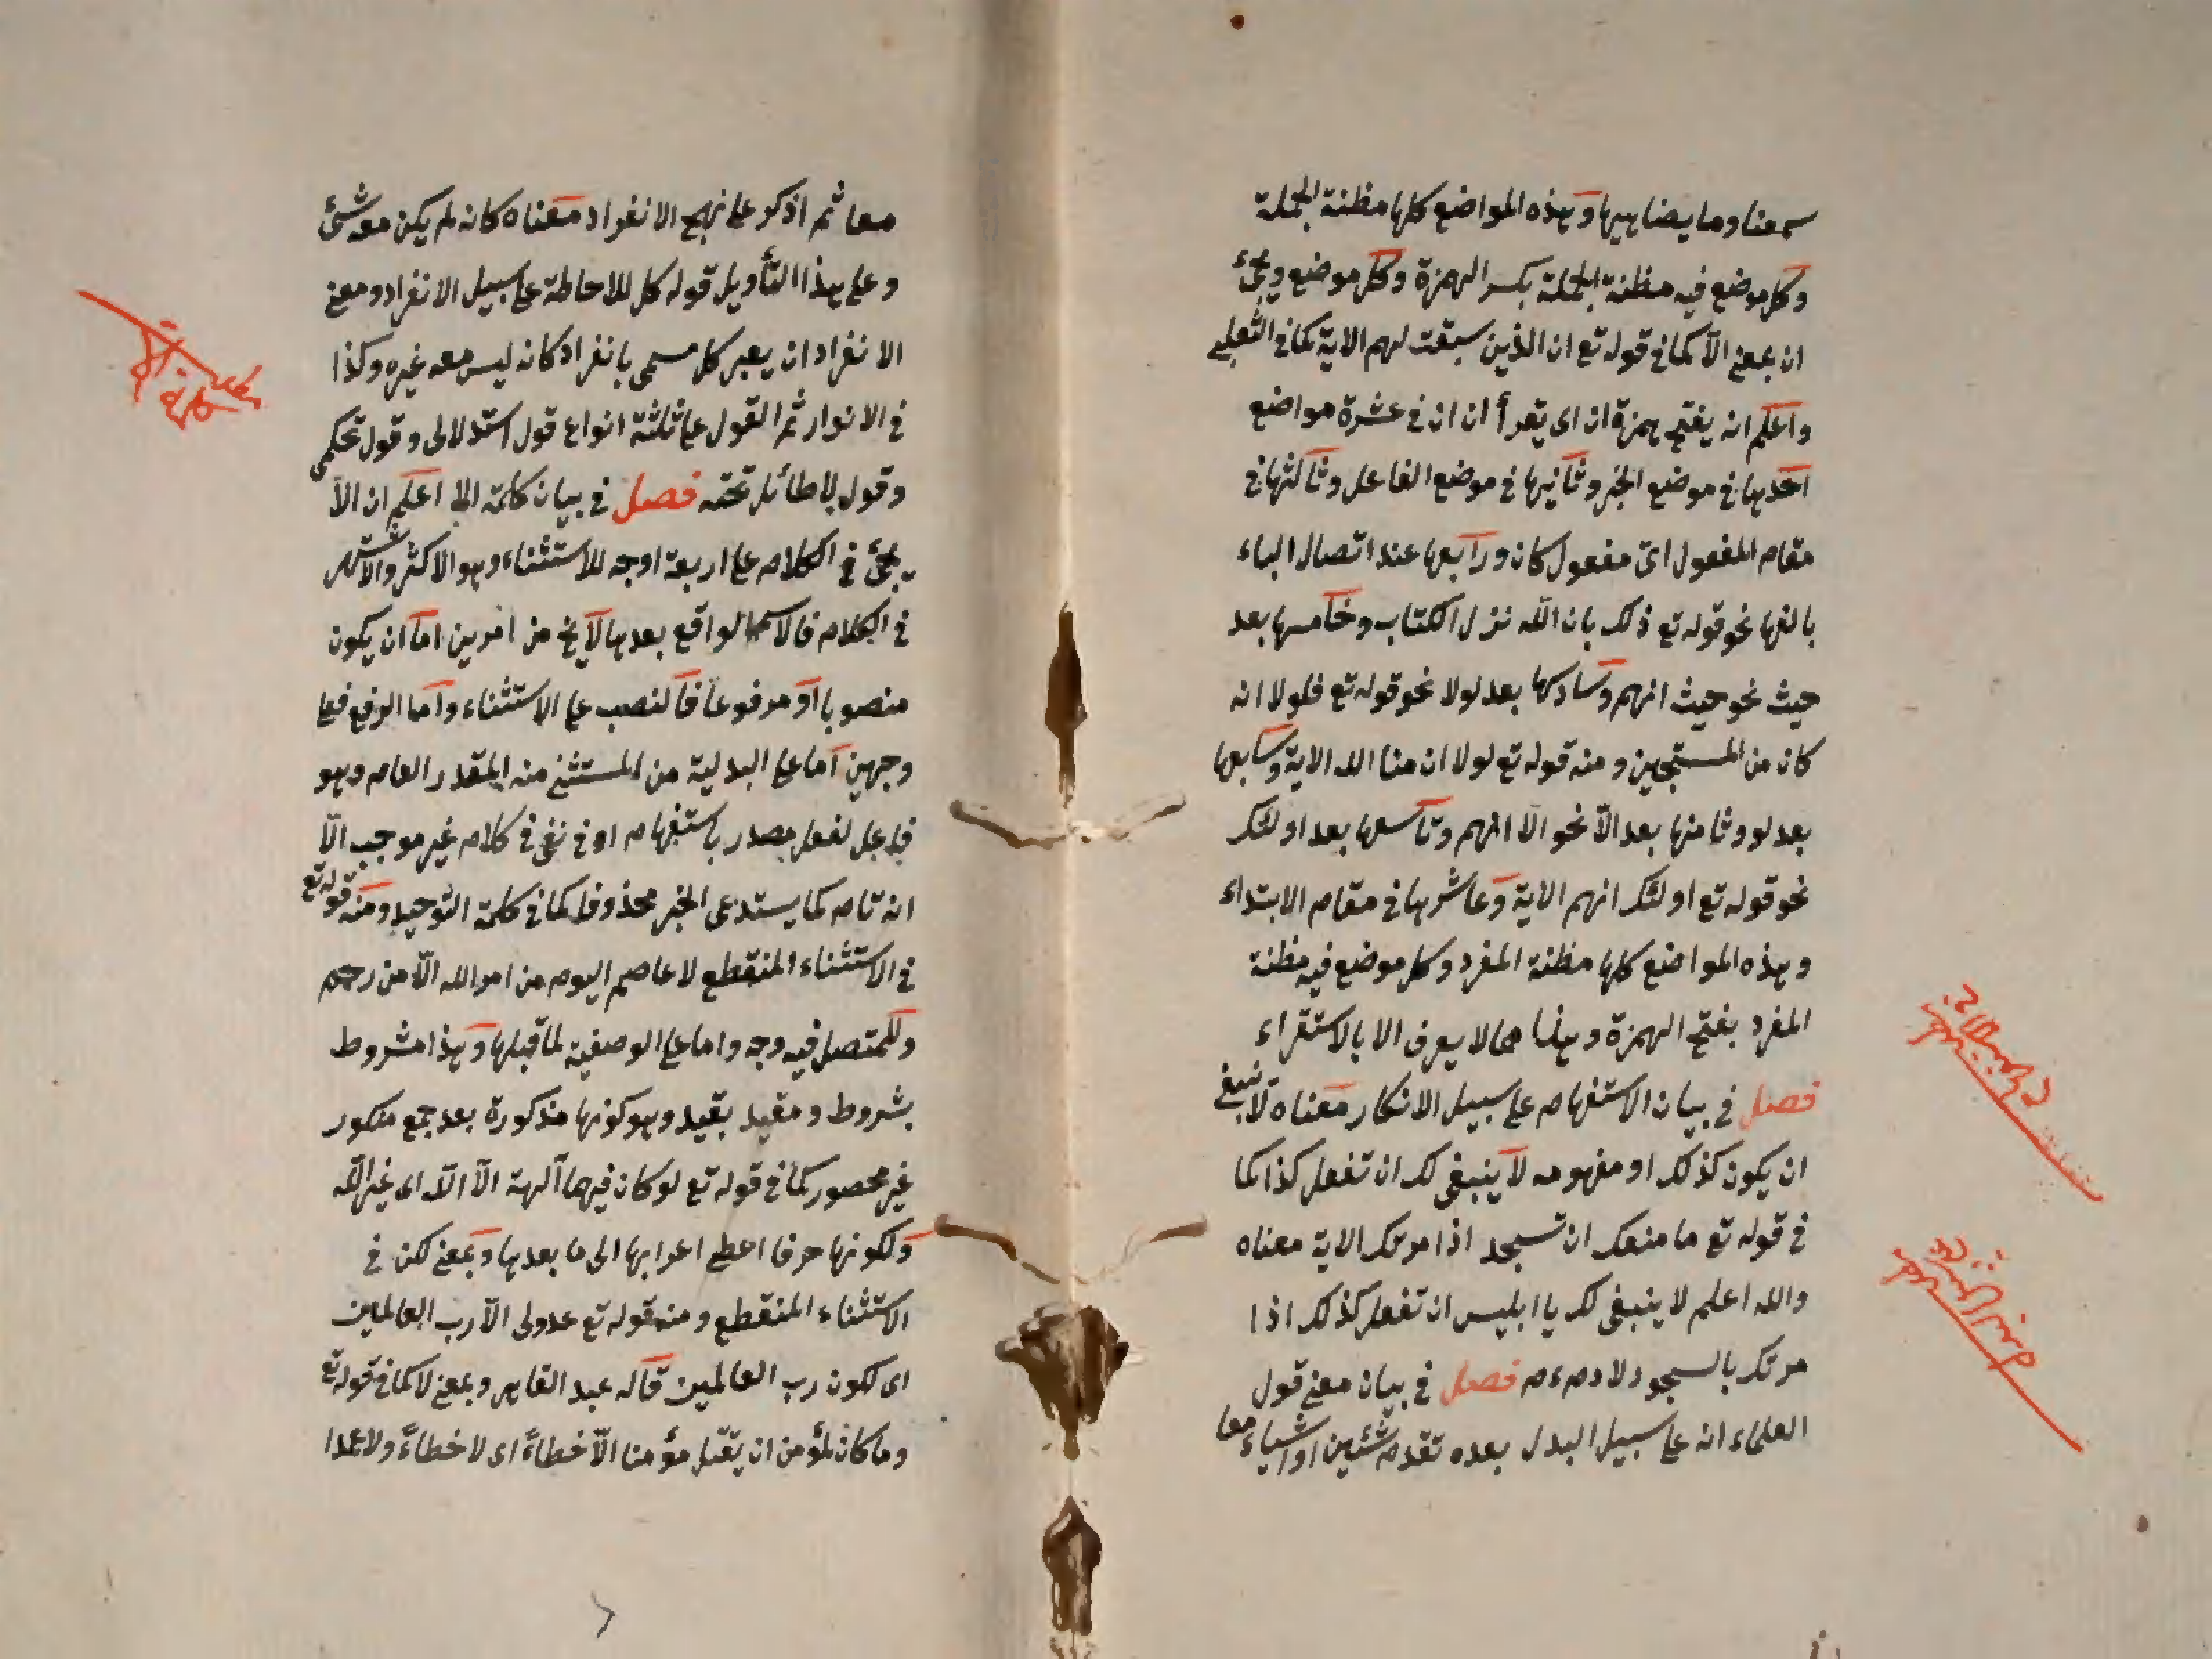 سمعنا وما يضاهيها وهذه المواضع كلها مظنة الجملة
وكل موضع فيه مظنة الجملة بكسر الهمزة وكل موضع ويجئ
ان بمعنى الا كما في قوله تع ان الذين سبقت لهم الاية كما في الثعلبي
واعلم انه يفتح همزة ان اى يقرأ ان ان في عشرة مواضع
احديها في موضع الخبر وثانيها في موضع الفاعل وثالثها في
مقام المفعول اى مفعول كان ورابعها عند اتصال الباء
بالفها نحو قوله تع ذلك بان الله نزل الكتاب وخامسها بعد
حيث نحو حيث انهم وسادسها بعد لولا نحو قوله تع فلولا انه
كان من المسبحين ومنه قوله تع لولا ان منا الله الاية وسابعها
بعد لو وثامنها بعد الا نحو الا انهم وتاسعها بعد اولئك
نحو قوله تع اولئك انهم الاية وعاشرها في مقام الابتداء
وهذه المواضع كلها مظنة المفرد وكل موضع فيه مظنة
المفرد بفتح الهمزة وهذا مما لا يعرف الا بالاستقراء
فصل في بيان الاستفهام على سبيل الانكار معناه لا ينبغى
ان يكون كذلك او مفهومه لا ينبغى لك ان تفعل كذا كما
في قوله تع ما منعك ان تسجد اذا مرتك الاية معناه
والله اعلم لا ينبغى لك يا ابليس ان تفعل كذلك اذا
مرتك بالسجود لادم ءم فصل في بيان معنى قول
العلماء انه على سبيل البدل بعده تقدم شئين او اشياء معا
معا ثم اذكر على نهج الانفراد معناه كانه لم يكن معه شئ
وعلى هذا التأويل قوله كل للاحاطة على سبيل الانفراد ومعنى
الانفراد ان يعبر كل مسمى بانفراد كانه ليس معه غيره وكذا
في الانوار ثم القول على ثلثة انواع قول استدلالى وقول تحكمى
وقول لا طائل تحته فصل في بيان كلمة الا اعلم ان الا
يجئ في الكلام على اربعة اوجه للاستثناء وهو الاكثر والاشهر
في الكلام فالاسم الواقع بعدها لا يخ من امرين اما ان يكون
منصوبا او مرفوعا فالنصب على الاستثناء واما الرفع فعلى
وجهين اما على البدلية من المستثنى منه المقدر العام وهو
فاعل لفعل مصدر باستفهام او في نفى في كلام غير موجب الا
انه تام كما يستدعى الخبر محذوفا كما في كلمة التوحيد ومنه قوله تع
في الاستثناء المنقطع لا عاصم اليوم من امر الله الا من رحم
وللمتصل فيه وجه واما على الوصفية لما قبلها وهذا مشروط
بشروط ومقيد بقيد وهو كونها مذكورة بعد جمع منكور
غير محصور كما في قوله تع لو كان فيهما آلهة الا الله اى غير الله
ولكونها حرفا اعطى اعرابها الى ما بعدها وبمعنى لكن في
الاستثناء المنقطع ومنه قوله تع عدولى الا رب العالمين
اى لكون رب العالمين قاله عبد القاهر وبمعنى لا كما في قوله تع
وما كان لمؤمن ان يقتل مؤمنا الا خطاءً اى لا خطاءً ولا عمدا